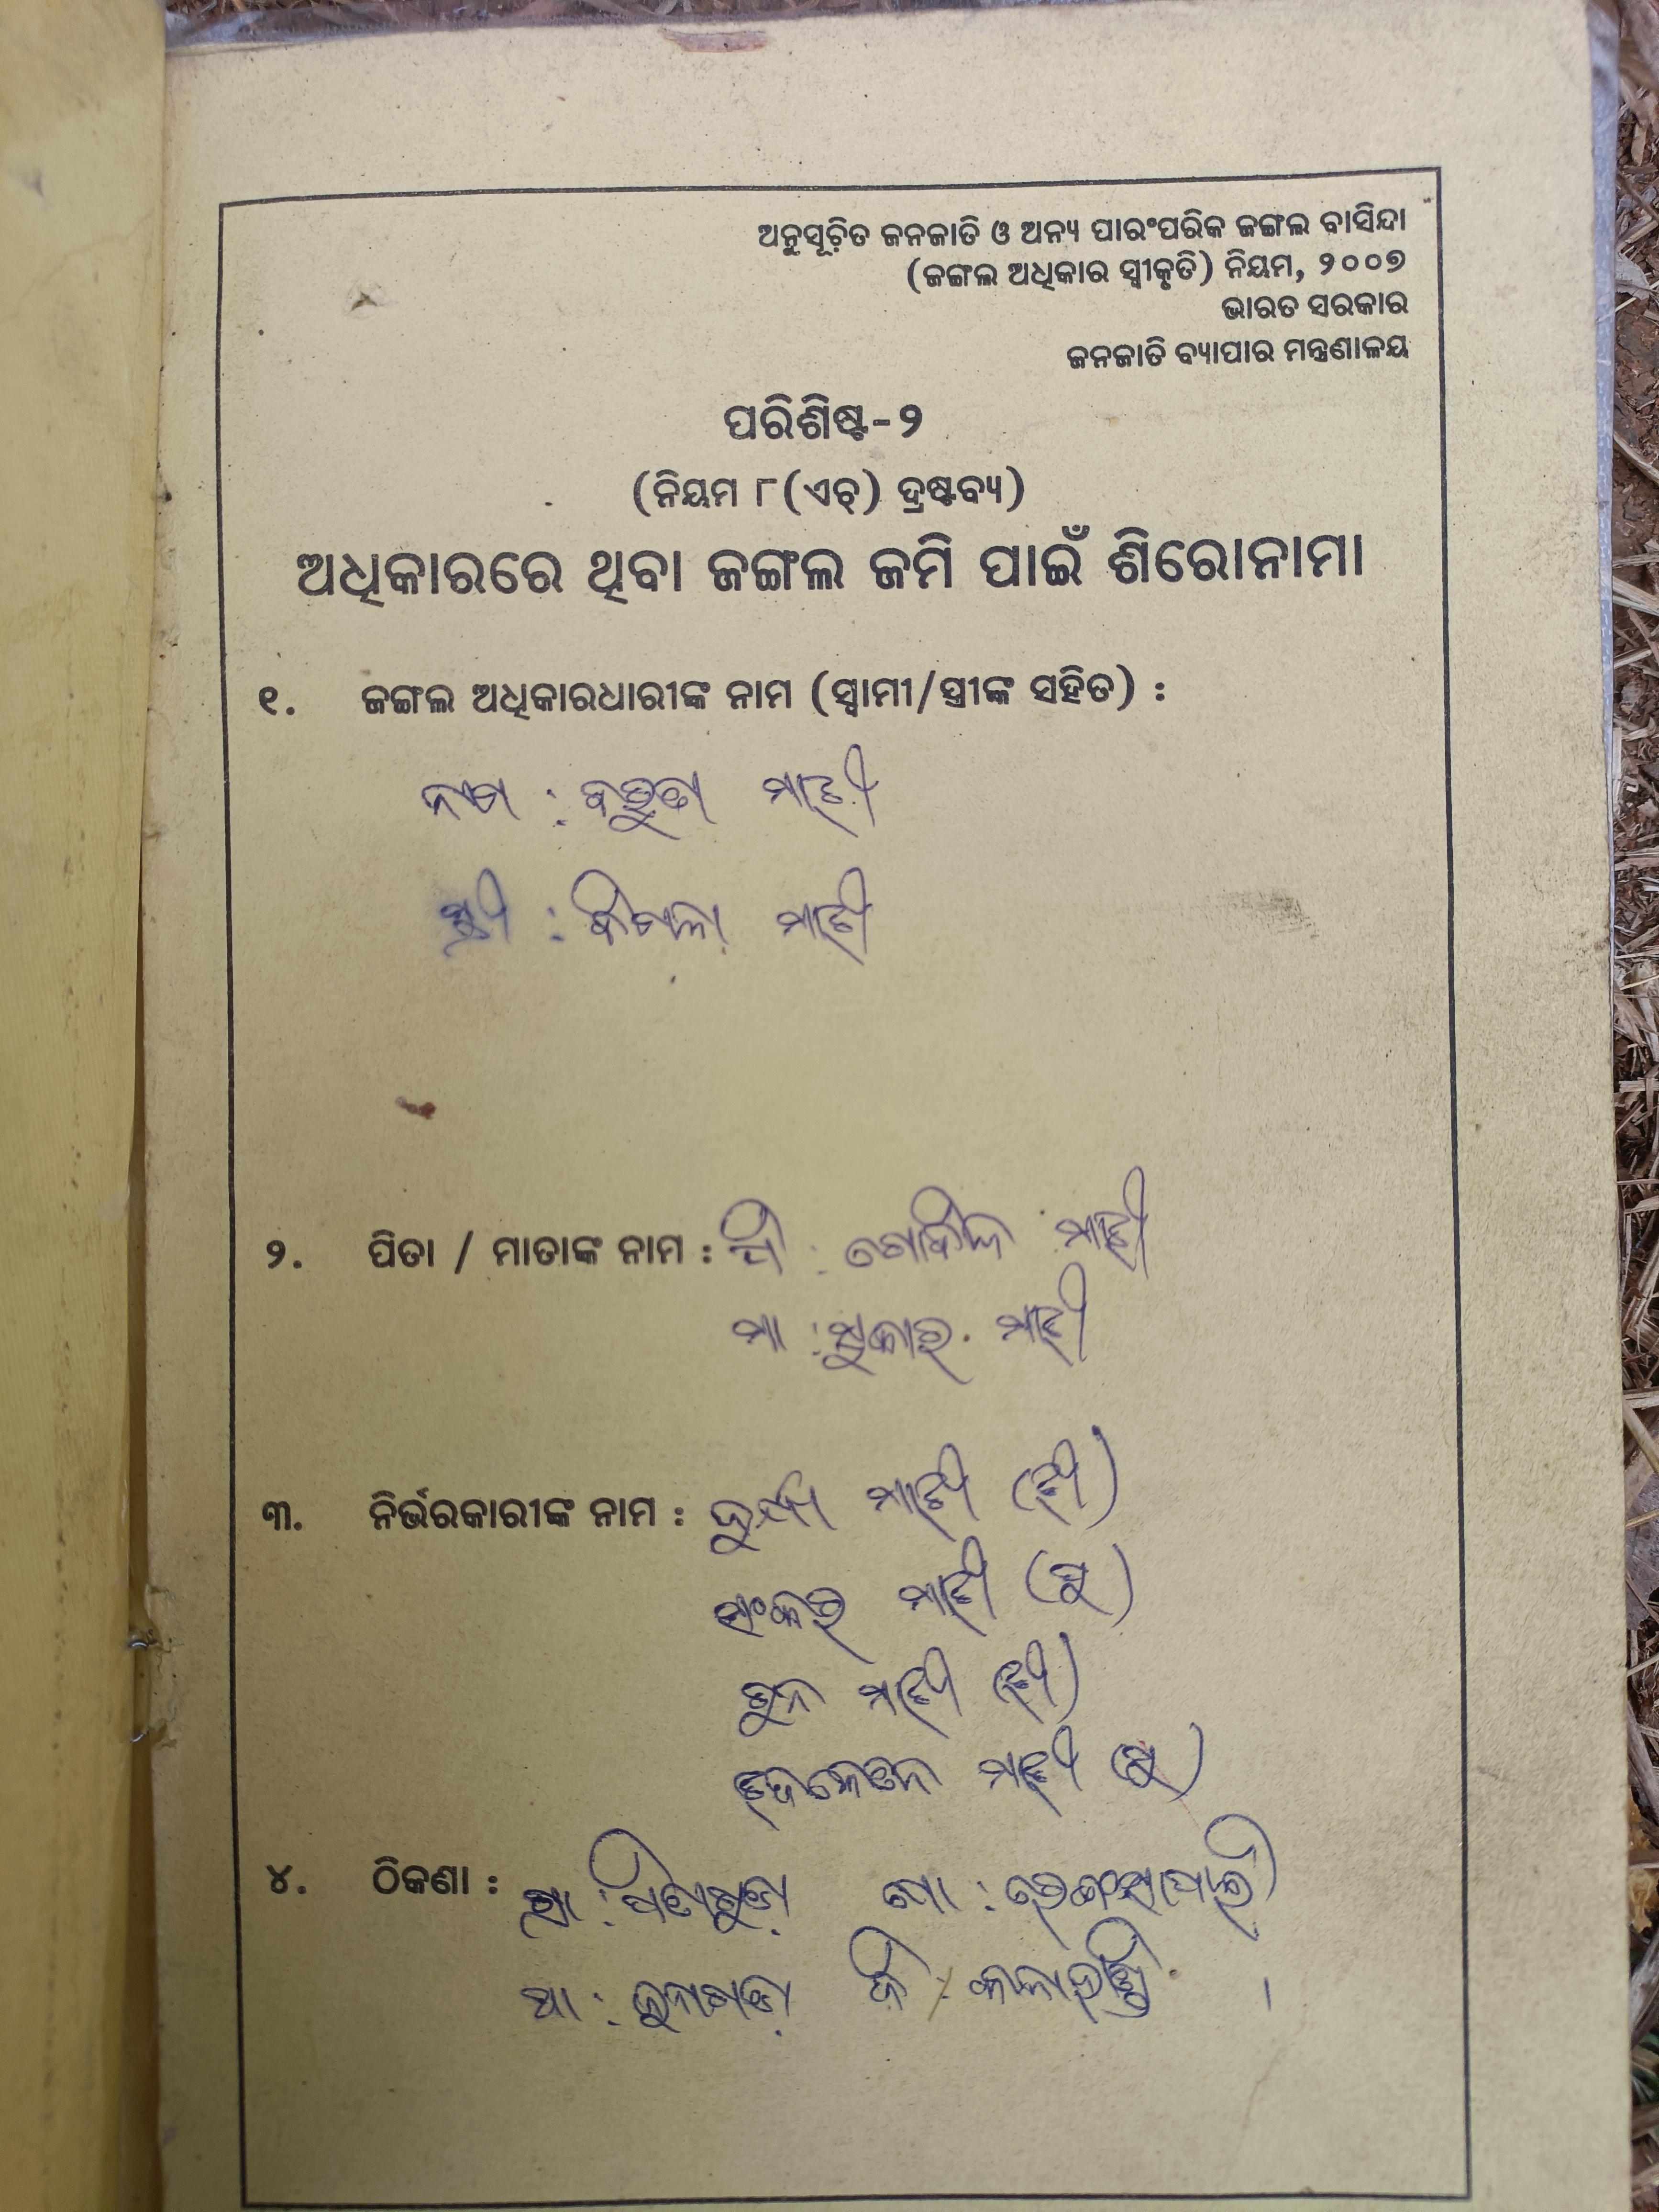 ଅନୁସୂଚିତ ଜନଜାତି ଓ ଅନ୍ୟ ପାରଂପରିକ ଜଙ୍ଗଲ ବାସିନ୍ଦା
(ଜଙ୍ଗଲ ଅଧିକାର ସ୍ୱୀକୃତି) ନିୟମ, ୨୦୦୭
ଭାରତ ସରକାର
ଜନଜାତି ବ୍ୟାପାର ମନ୍ତ୍ରଣାଳୟ
ପରିଶିଷ୍ଟ-୨
(ନିୟମ ୮(ଏଚ୍) ଦ୍ରଷ୍ଟବ୍ୟ)
ଅଧିକାରରେ ଥିବା ଜଙ୍ଗଲ ଜମି ପାଇଁ ଶିରୋନାମା
୧. ଜଙ୍ଗଲ ଅଧିକାରଧାରୀଙ୍କ ନାମ (ସ୍ୱାମୀ/ସ୍ତ୍ରୀଙ୍କ ସହିତ) :
ନାମ : ମାଝୀ
ସ୍ତ୍ରୀ : ବିମଳା ମାଝୀ
୨. ପିତା / ମାତାଙ୍କ ନାମ : ପି : ମାଝୀ
ମା : ମାଝୀ
୩. ନିର୍ଭରକାରୀଙ୍କ ନାମ : ମାଝୀ (ଝି)
ସଂକର ମାଝୀ (ପୁ)
ମାଝୀ (ଝି)
ମାଝୀ (ପୁ)
୪. ଠିକଣା : ଗ୍ରା : ପୋ :
ଥା : ଜୁନାଗଡ଼ ଜି : କଳାହାଣ୍ଡି ।